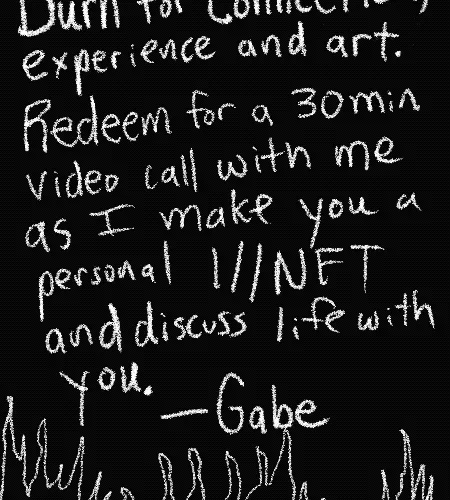 Burn for
experience and art.
Redeem for a 30min
video call with me
as I make you a
personal 1//NFT
and discuss life with
you.
—Gabe